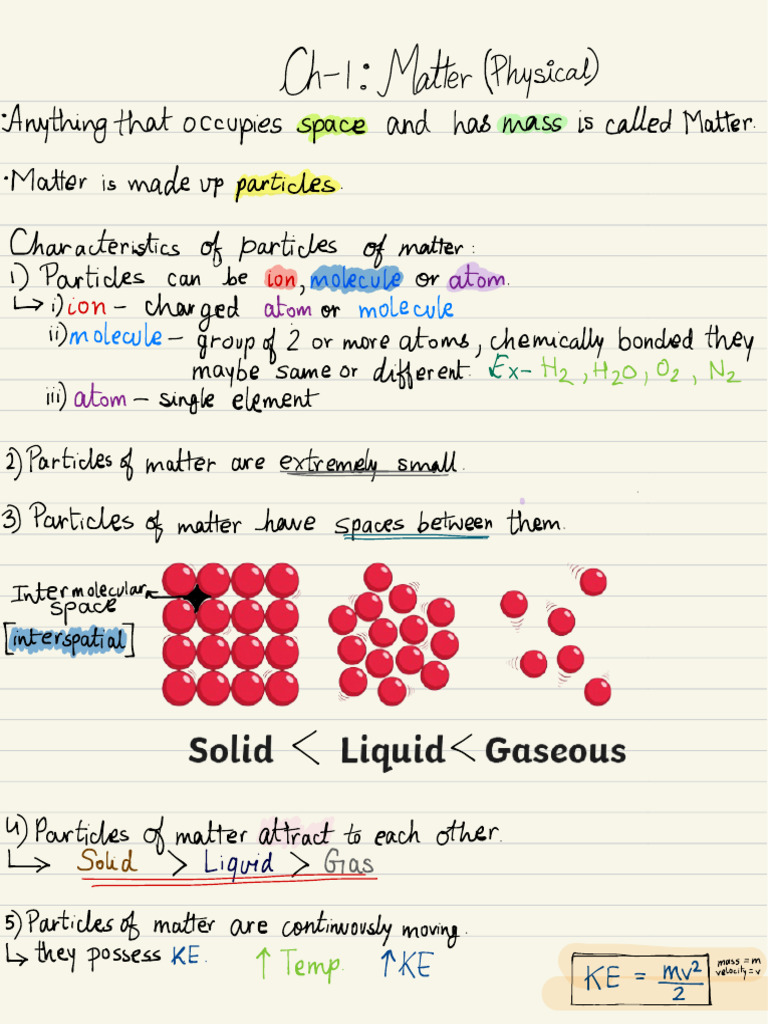 Ch-1: Matter (Physical)
·Anything that occupies space and has mass is called Matter.
·Matter is made up particles.
Characteristics of particles of matter:
1) Particles can be ion, molecule or atom.
↳ i) ion - charged atom or molecule
ii) molecule - group of 2 or more atoms, chemically bonded they
maybe same or different. Ex- H2, H2O, O2, N2
iii) atom - single element
2) Particles of matter are extremely small.
3) Particles of matter have spaces between them.
Intermolecular
space
[interspatial]
Solid < Liquid < Gaseous
4) Particles of matter attract to each other.
↳ Solid > Liquid > Gas
5) Particles of matter are continuously moving.
↳ they possess KE. ↑ Temp. ↑KE
KE = mv²/2
mass = m
velocity = v